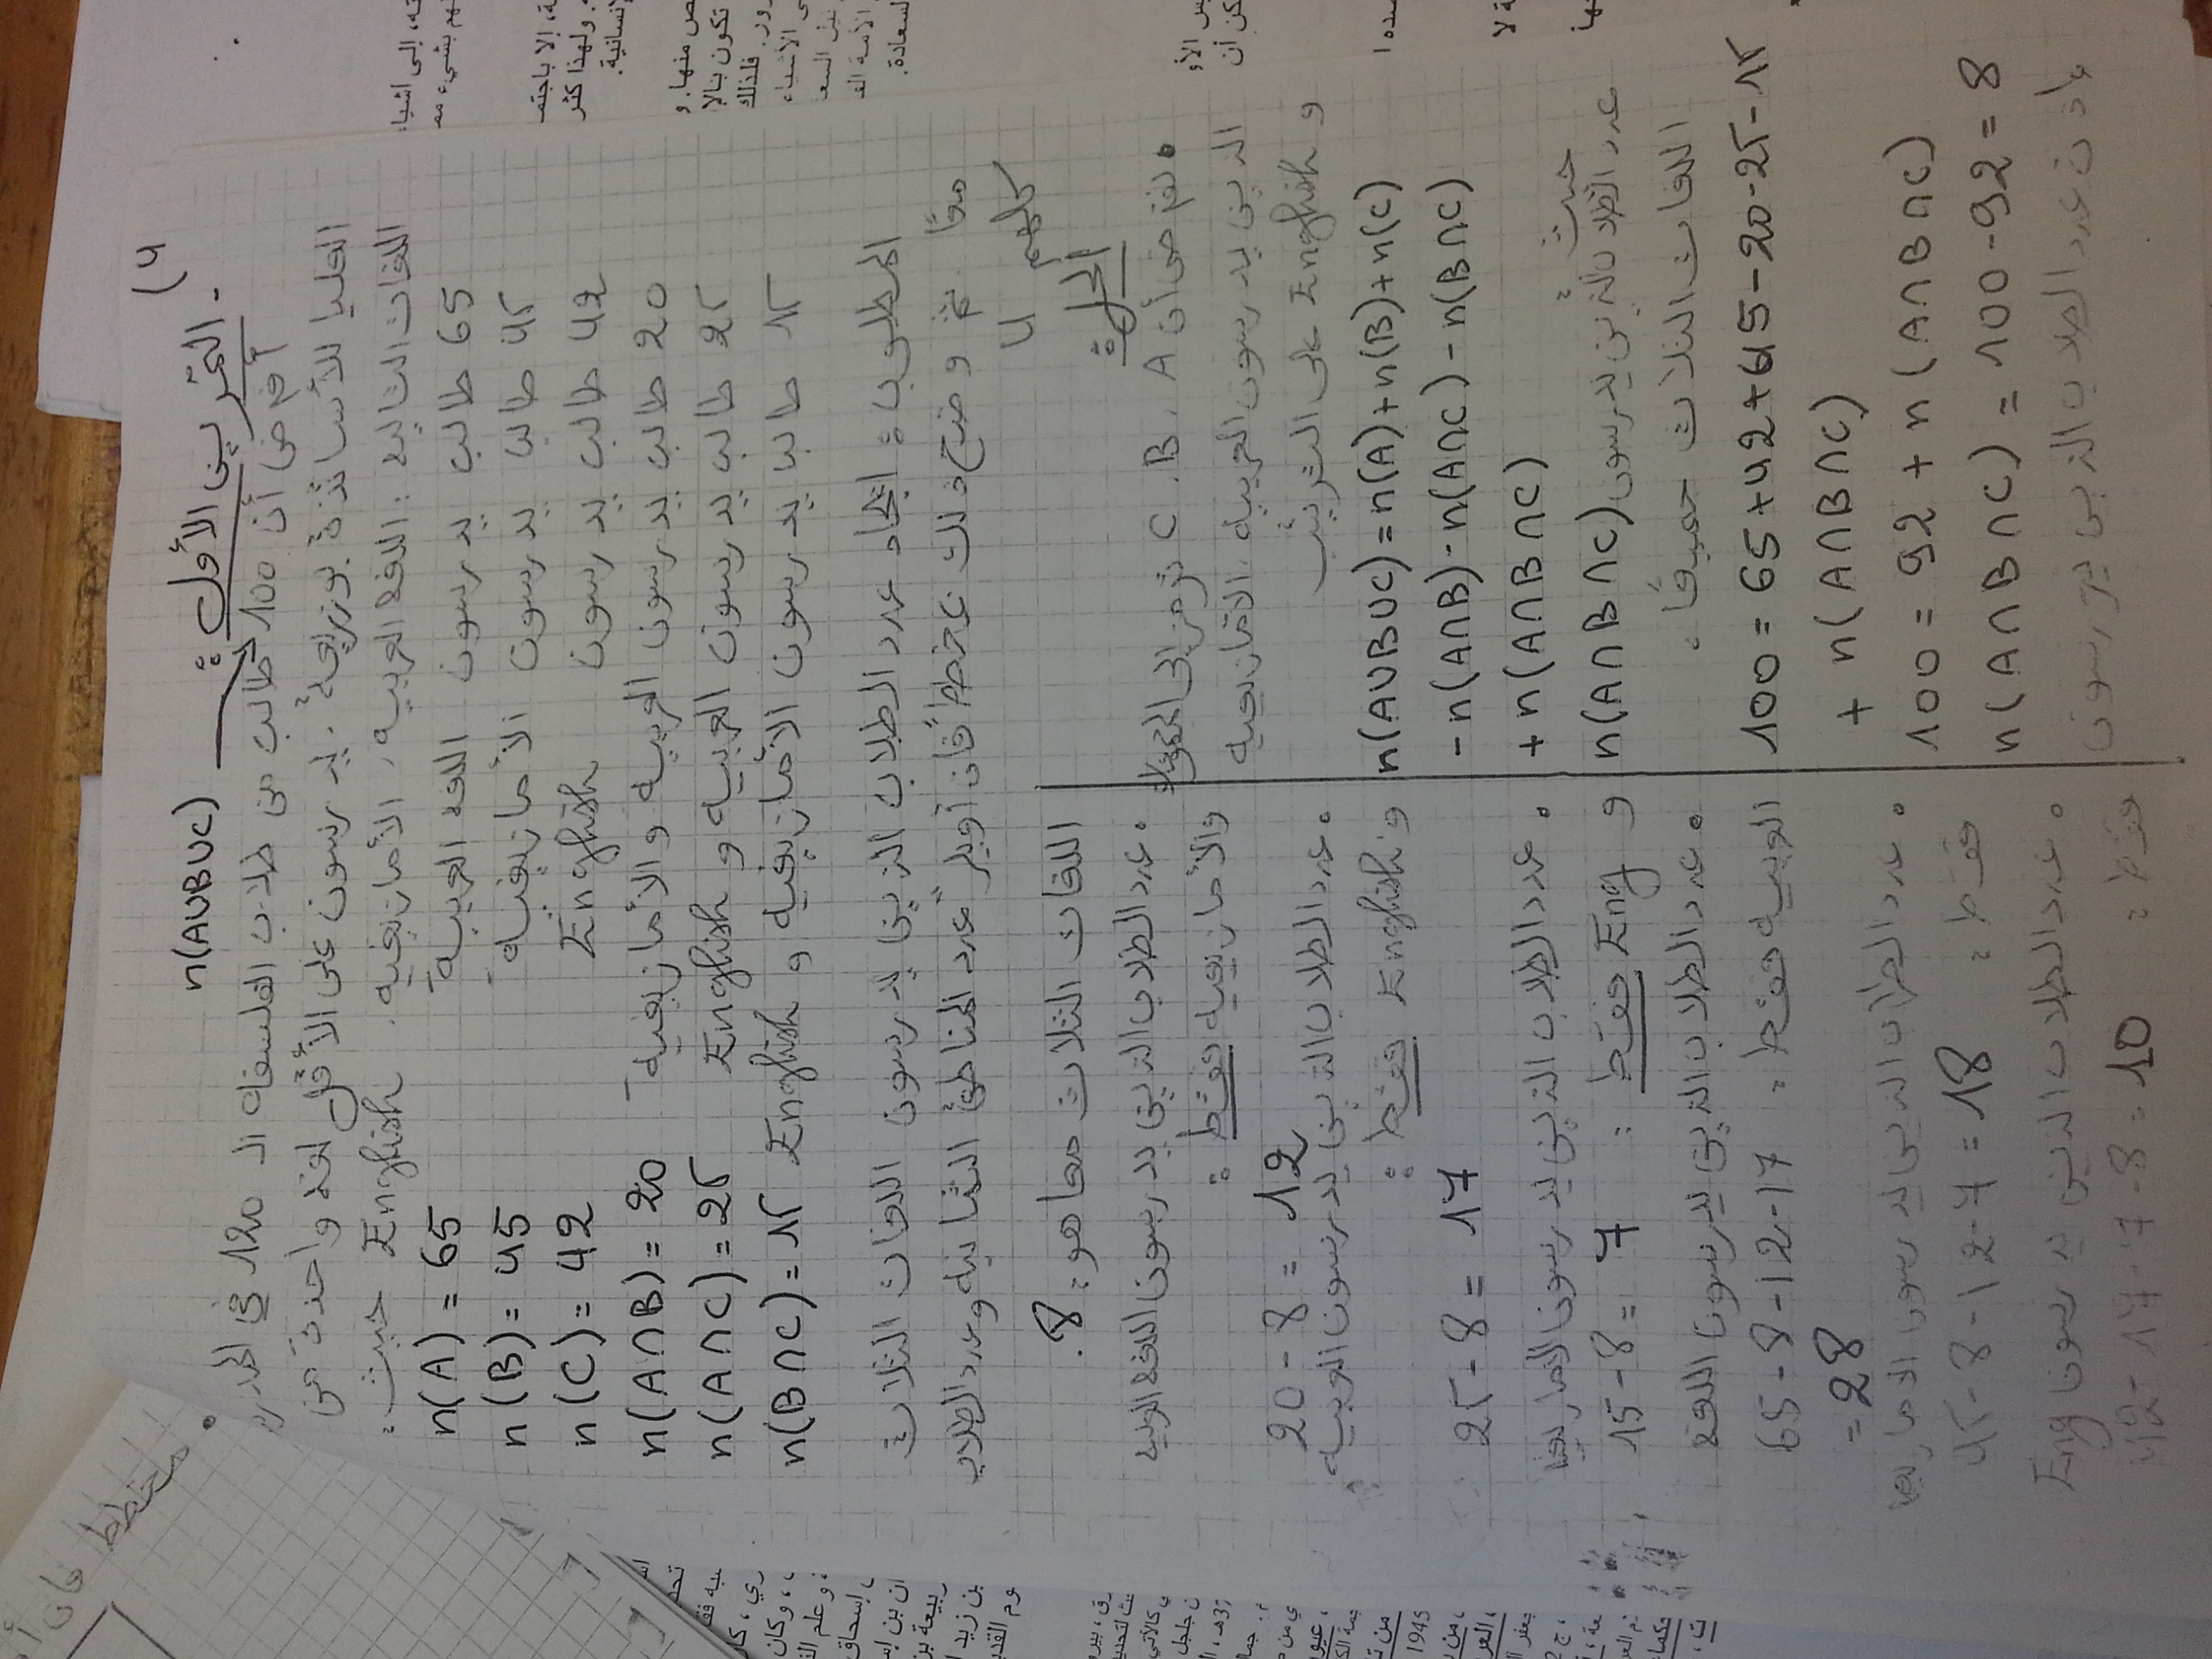 4)
- التمرين الأول : n(AUBUC)
أفرض أن 100 طالب من طلاب الفلسفة الـ 120 في المدرسة
العليا للأساتذة بوزريعة. يدرسون على الأقل لغة واحدة من
اللغات التالية : اللغة العربية، الأمازيغية. English حيث :
65 طالب يدرسون اللغة العربية n(A) = 65
45 طالب يدرسون الأمازيغية n(B) = 45
42 طالب يدرسون English n(C) = 42
20 طالب يدرسون العربية و الأمازيغية n(A∩B) = 20
25 طالب يدرسون العربية و English n(A∩C) = 25
15 طالبا يدرسون الأمازيغية و English n(B∩C) = 15
المطلوب : ايجاد عدد الطلاب الذين يدرسون اللغات الثلاث
معًا. ثم وضح ذلك بمخطط "فان أويلر" عدد المناطق الثمانية وعدد الطلاب
كلهم U
الحل :
• نفترض أن A . B . C ترمز إلى المجموعات
الذين يدرسون العربية. الأمازيغية
و English على الترتيب
n(AUBUC) = n(A) + n(B) + n(C)
- n(A∩B) - n(A∩C) - n(B∩C)
+ n(A∩B∩C)
حيث :
n(A∩B∩C) عدد الطلاب الذين يدرسون
اللغات الثلاث جميعًا.
100 = 65+42+45-20-25-15
+ n(A∩B∩C)
100 = 92 + n(A∩B∩C)
n(A∩B∩C) = 100 - 92 = 8
إذن عدد الطلاب الذين يدرسون
اللغات الثلاث معا هو : 8.
• عدد الطلاب الذين يدرسون اللغة العربية
والأمازيغية فقط :
20 - 8 = 12
• عدد الطلاب الذين يدرسون العربية
و English فقط :
25 - 8 = 17
• عدد الطلاب الذين يدرسون الأمازيغية
و Eng فقط : 15 - 8 = 7
• عدد الطلاب الذين يدرسون اللغة
العربية فقط : 65 - 8 - 12 - 17
= 28
• عدد الطلاب الذين يدرسون الأمازيغية
فقط : 45 - 8 - 12 - 7 = 18
• عدد الطلاب الذين يدرسون Eng
فقط : 42 - 17 - 7 - 8 = 10